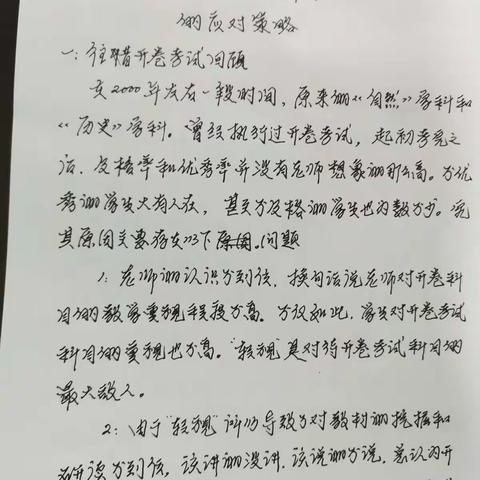 的应对策略
一:往昔开卷考试回顾
在2000年左右一段时间,原来的《自然》学科和
《历史》学科。曾经执行过开卷考试,起初考完之
后,及格率和优秀率并没有老师想象的那么高。不优
秀的学生大有人在,甚至不及格的学生也为数不少。究
其原因主要存在以下 问题
1:老师的认识不到位,换句话说老师对开卷科
目的教学重视程度不高。不仅如此,学生对开卷考试
科目的重视也不高。"轻视"是对待开卷考试科目的
最大敌人。
2:由于"轻视" 导致不对教材的挖掘和
研读不到位,该讲的没讲,该说的不说,总认为开